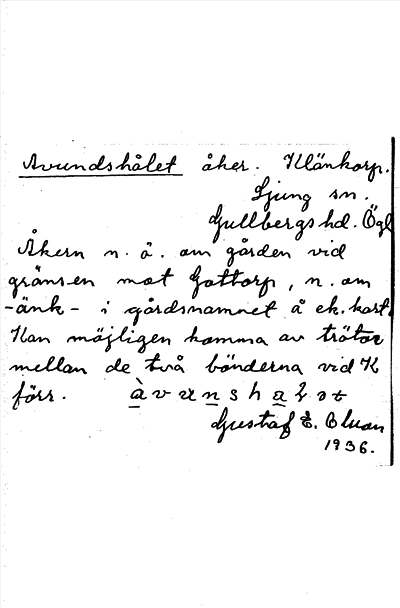 Avundshålet åker. Klänkorp.
Ljung sn.
Gullbergs hd. Ögl
Åkern n. ö. om gården vid
gränsen mot Gottorp, n. om
-änk- i gårdsnamnet å ek. kart.
Kan möjligen komma av trätor
mellan de två bönderna vid K
förr. àvunshaḷət
Gustaf E. Bluan
1936.